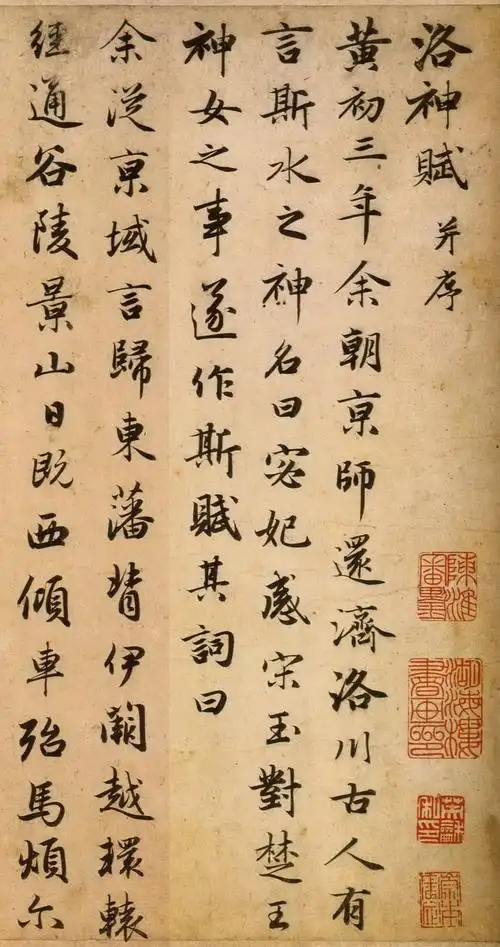 洛神賦 并序
黄初三年余朝京師還濟洛川古人有
言斯水之神名曰宓妃感宋玉對楚王
神女之事遂作斯賦其詞曰
余從京域言歸東藩背伊闕越轘轅
經通谷陵景山日既西傾車殆馬煩尒